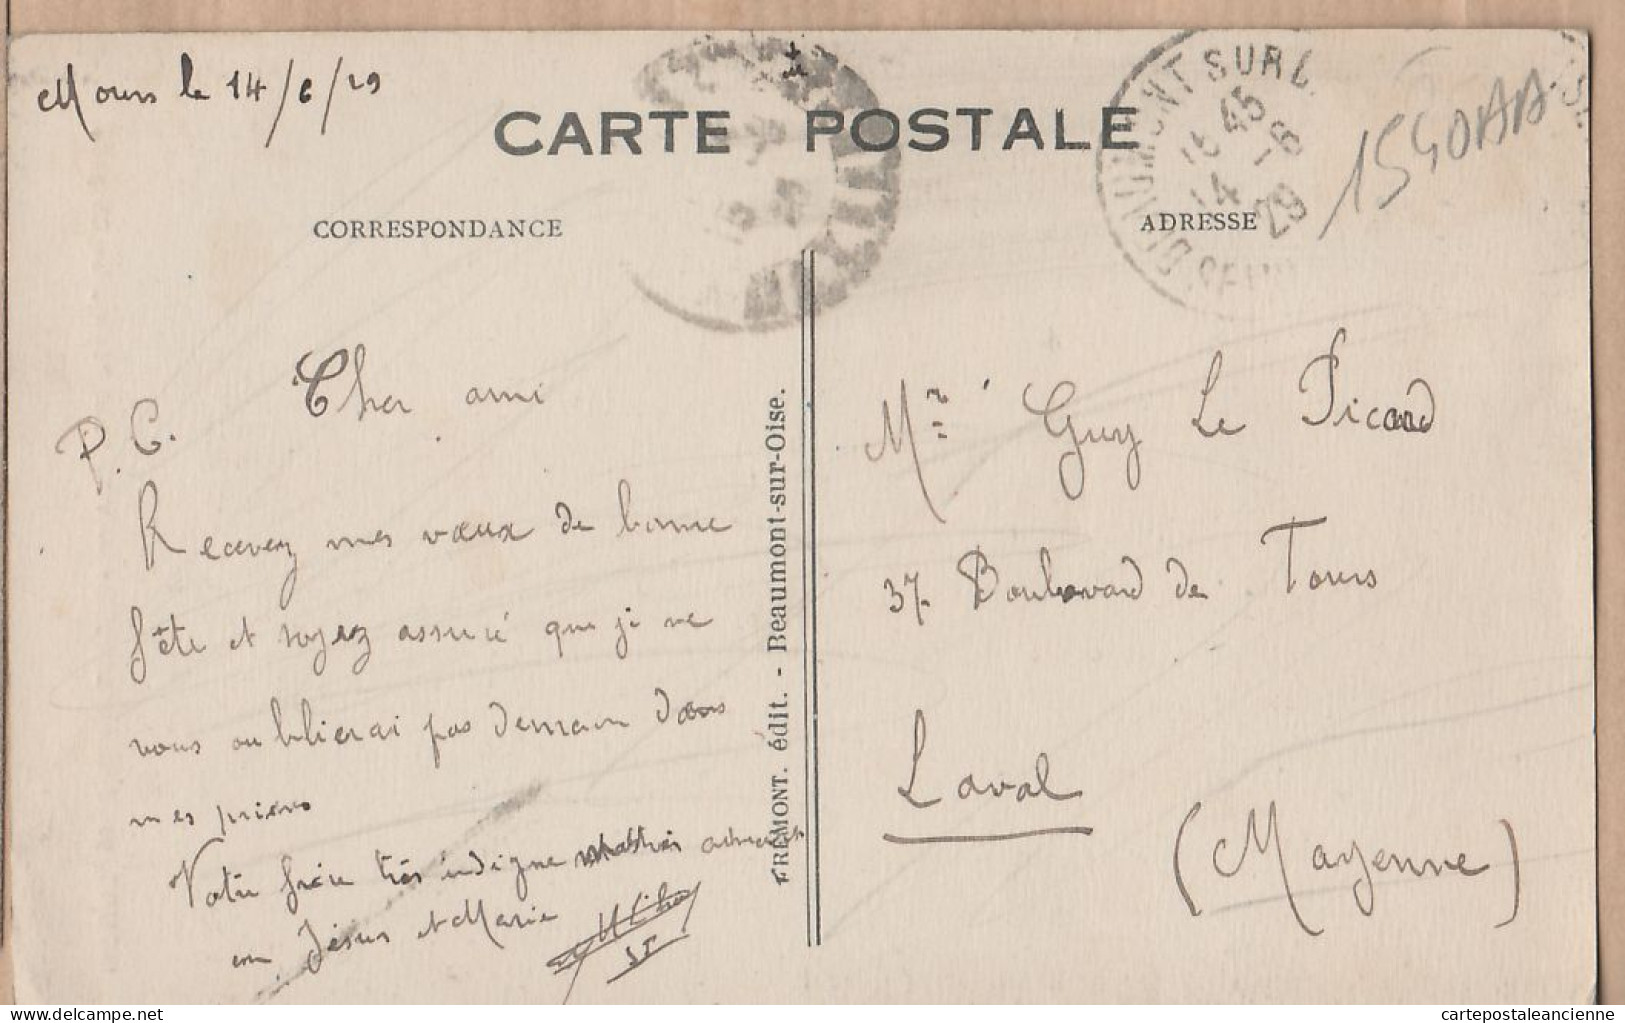 Mours le 14/6/29
CARTE POSTALE
CORRESPONDANCE
ADRESSE
MONT SUR
45
14 - 6
29
1540AA
P.C.
Cher ami
Recevez mes vœux de bonne
fête et soyez assuré que je ne
vous oublierai pas demain dans
mes prières
Votre frère très indigne
en Jésus et Marie
FRÉMONT. édit. - Beaumont-sur-Oise.
Mr Guy Le Picard
37 Boulevard de Tours
Laval
(Mayenne)
delcampe.net
cartepostaleancienne